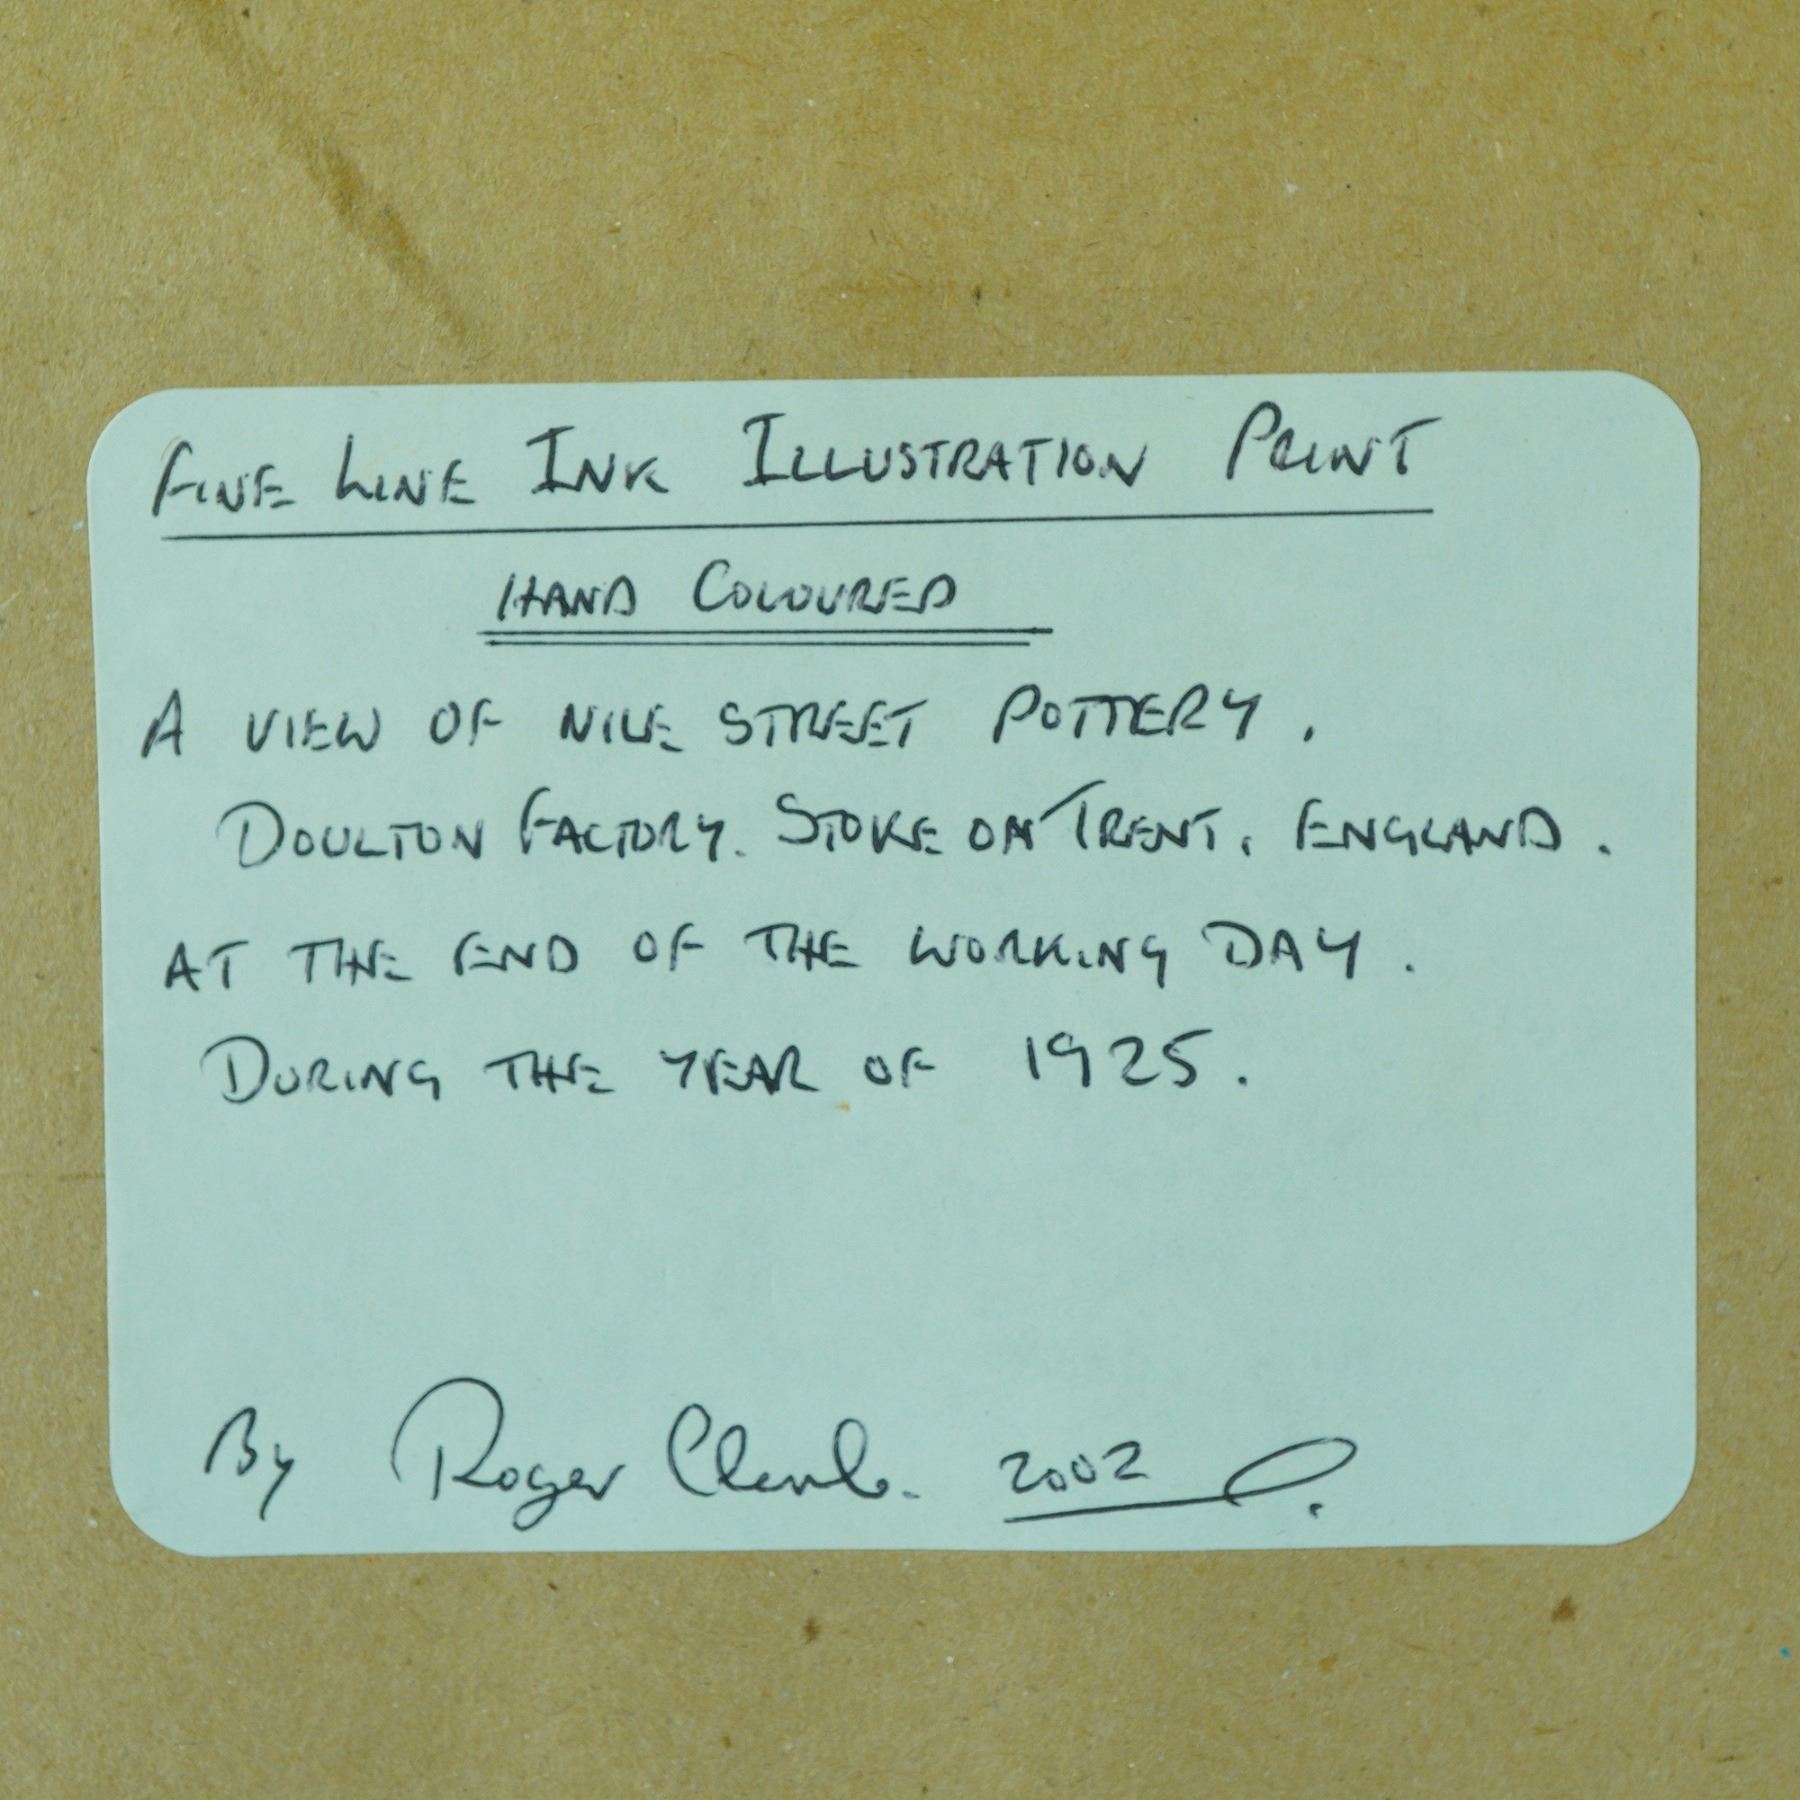 FINE LINE INK ILLUSTRATION PRINT
HAND COLOURED
A VIEW OF NILE STREET POTTERY.
DOULTON FACTORY. STOKE ON TRENT, ENGLAND.
AT THE END OF THE WORKING DAY.
DURING THE YEAR OF 1925.
By Roger 2002